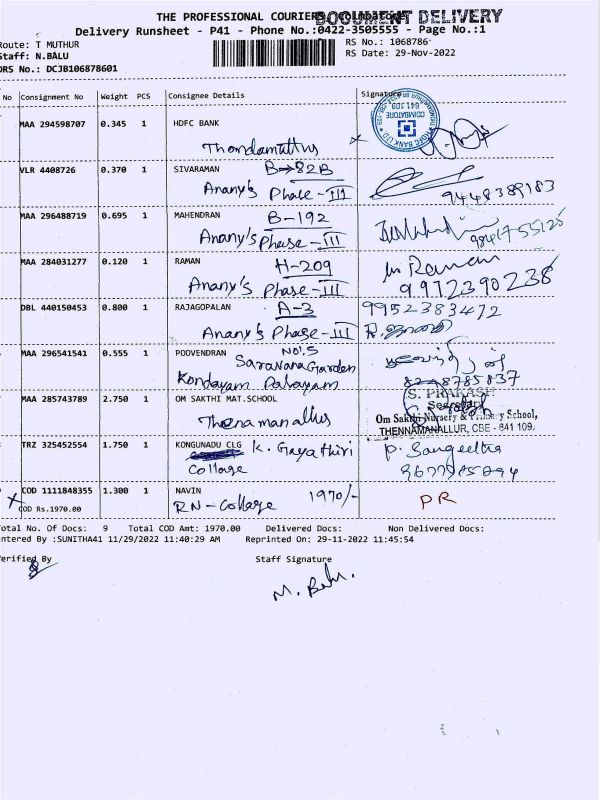 THE PROFESSIONAL COURIERS
DOCUMENT DELIVERY
Delivery Runsheet - P41 - Phone No.:0422-3505555 - Page No.:1
Route: T MUTHUR
RS No.: 1068786
Staff: N.BALU
RS Date: 29-Nov-2022
DRS No.: DCJB106878601
No Consignment No Weight PCS Consignee Details Signature
MAA 294598707 0.345 1 HDFC BANK
Thondamuttur
HDFC BANK LTD
COIMBATORE
641 109
VLR 4408726 0.370 1 SIVARAMAN B→82B
Anany's Phase-III
9448389183
MAA 296488719 0.695 1 MAHENDRAN B-192
Anany's Phase-III
98417-55120
MAA 284031277 0.120 1 RAMAN H-209
Raman
Anany's Phase-III
9972390238
DBL 440150453 0.800 1 RAJAGOPALAN A-3
9952383472
Anany's Phase-III
MAA 296541541 0.555 1 POOVENDRAN No:5
Saravana Garden
Kondayam Palayam
MAA 285743789 2.750 1 OM SAKTHI MAT.SCHOOL
Thenamanallur
S. PRAKASH
Secretary
Om Sakthi Nursery & Primary School,
THENNAMANALLUR, CBE - 641 109.
TRZ 325452554 1.750 1 KONGUNADU CLG K. Gayathiri
Collage
P. Sangeetha
COD 1111848355 1.300 1 NAVIN
RN-Collage 1970/-
PR
COD Rs.1970.00
Total No. Of Docs: 9 Total COD Amt: 1970.00 Delivered Docs: Non Delivered Docs:
Entered By :SUNITHA41 11/29/2022 11:40:29 AM Reprinted On: 29-11-2022 11:45:54
Verified By
Staff Signature
M. Balu.